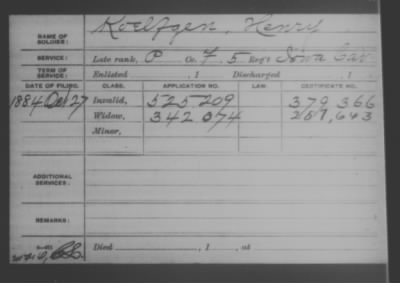 NAME OF SOLDIER: Koelfgen, Henry
SERVICE: Late rank, P Co. F, 5 Reg't Iowa Cav
TERM OF SERVICE: Enlisted , 1 Discharged , 1
DATE OF FILING. CLASS. APPLICATION NO. LAW. CERTIFICATE NO.
1884 Oct 27 Invalid, 525209 379,366
Widow, 342074 257,643
Minor,
ADDITIONAL SERVICES:
REMARKS:
Died , 1 , at